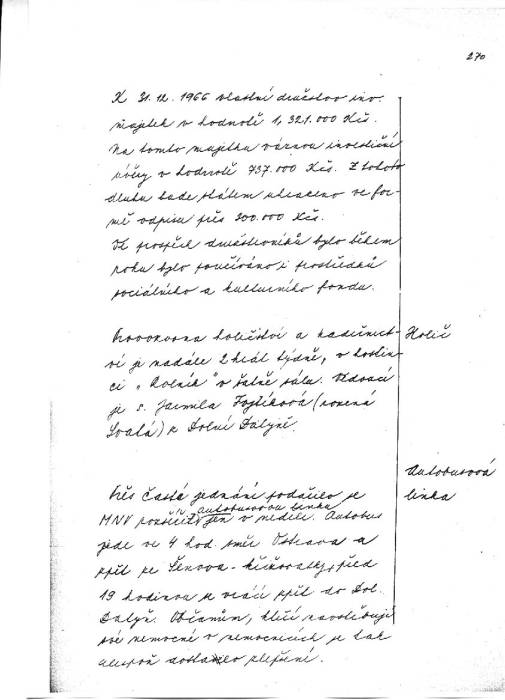 270
K 31. 12. 1966 vlastní družstvo jmě.
majetek v hodnotě 1,321.000 Kčs.
Na tomto majetku váznou investiční
úvěry v hodnotě 737.000 Kčs. Z tohoto
dluhu bude státem uhrazeno ve for-
mě odpisu přes 300.000 Kčs.
Ve prospěch družstevníků bylo během
roku bylo používáno i prostředků
sociálního a kulturního fondu.
Provozovna holičství a kadeřnict-
ví je nadále 2 krát týdně, v hostin-
ci „Rolník" v šatně sálu. Vedoucí
je s. Jarmila Fojtíková (rozená
) z Dolní Datyně.
Holič
Autobusová
linka
Přes časté jednání podařilo se
MNV rozšířit autobusovou linku
jen v neděli. Autobus
jede ve 4 hod. směr Ostrava a
zpět ze Šenova - před
19 hodinou se vrací zpět do Dol.
Datyň. Občanům, kteří navštěvují
své nemocné v nemocnicích se tak
alespoň dostalo zlepšení.